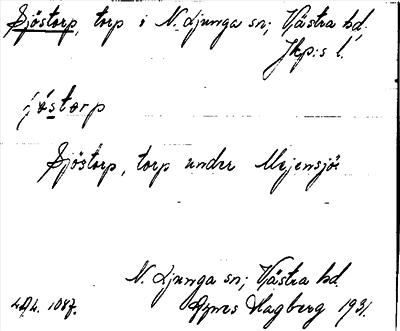 Sjöstorp, torp i N. Ljunga sn; Västra hd.
Jkp:s l.
Sjöstorp, torp under Mejensjö
N. Ljunga sn; Västra hd.
1087. Agnes Hagberg 1931.